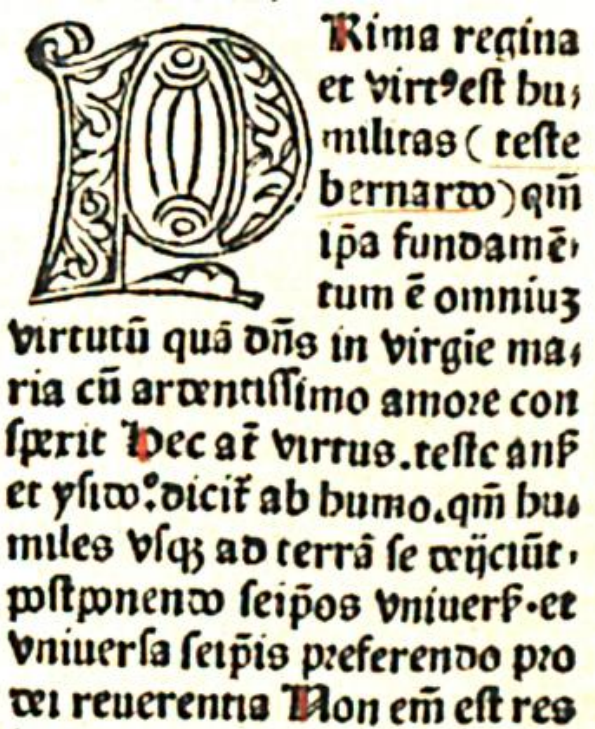 PRima regina
et virtꝰ est hu⸗
militas ( teste
bernardo ) qm̄
ip̄a fundamē⸗
tum ē omniuꝫ
virtutū quā dn̄s in virgīe ma⸗
ria cū ardentissimo amore con
sperit Hec at̄ virtus. teste
et ysido°: dicit̄ ab humo. qm̄ hu⸗
miles vsqꝫ ad terrā se deijciūt.
postponendo seip̄os vniuers̄. et
vniuersa seip̄is preferendo pro
dei reuerentia Non em̄ est res